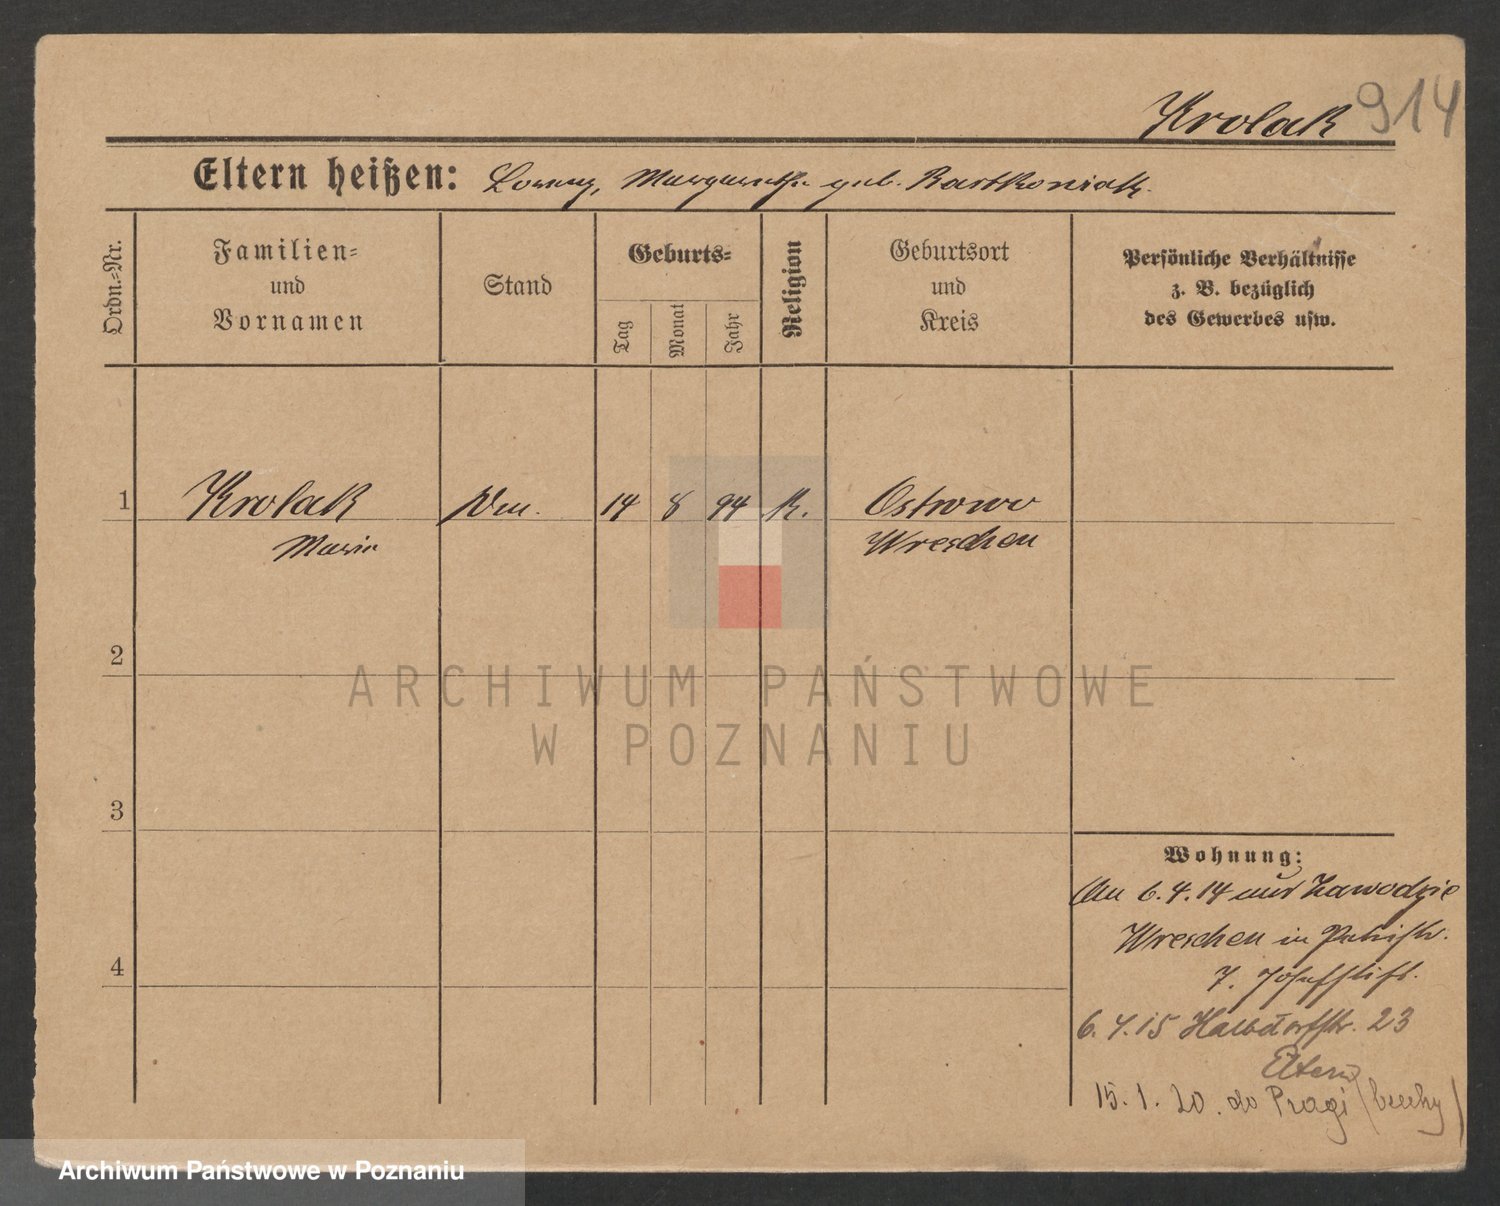 Krolak 914
Eltern heißen: Lorenz, Margaretha geb. Bartkowiak.
Ordn.-Nr.
Familien-
und
Vornamen
Stand
Geburts-
Tag
Monat
Jahr
Religion
Geburtsort
und
Kreis
Persönliche Verhältnisse
z. B. bezüglich
des Gewerbes usw.
1 Krolak 14 8 94 K. Ostrowo
Marie Wreschen
2
3
4
Wohnung:
An 6.4.14 aus Zawodzie
Wreschen in
7. Josefstift.
6.4.15 Halbdorfstr. 23
Eltern
15.1.20. do Pragi (Czechy)
ARCHIWUM PAŃSTWOWE
W POZNANIU
Archiwum Państwowe w Poznaniu